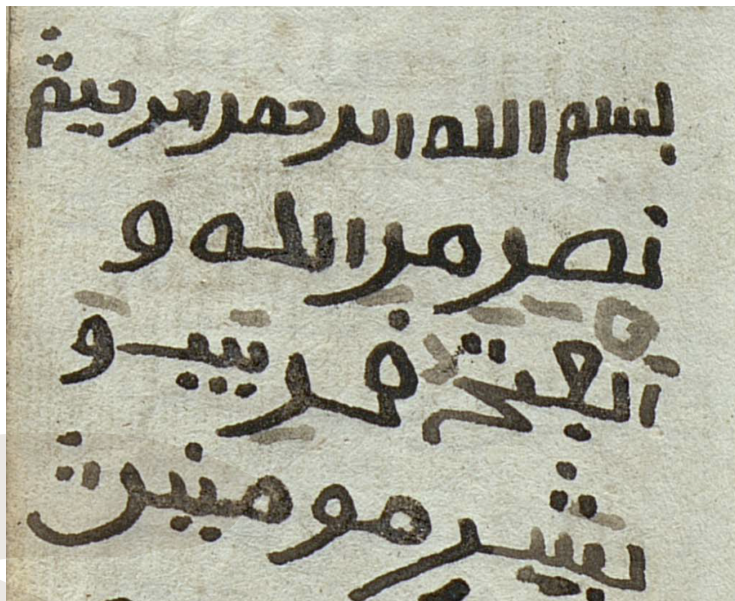 بسم الله الرحمن الرحيم
نصر من الله و
الفتح قريب و
بشر مومنين